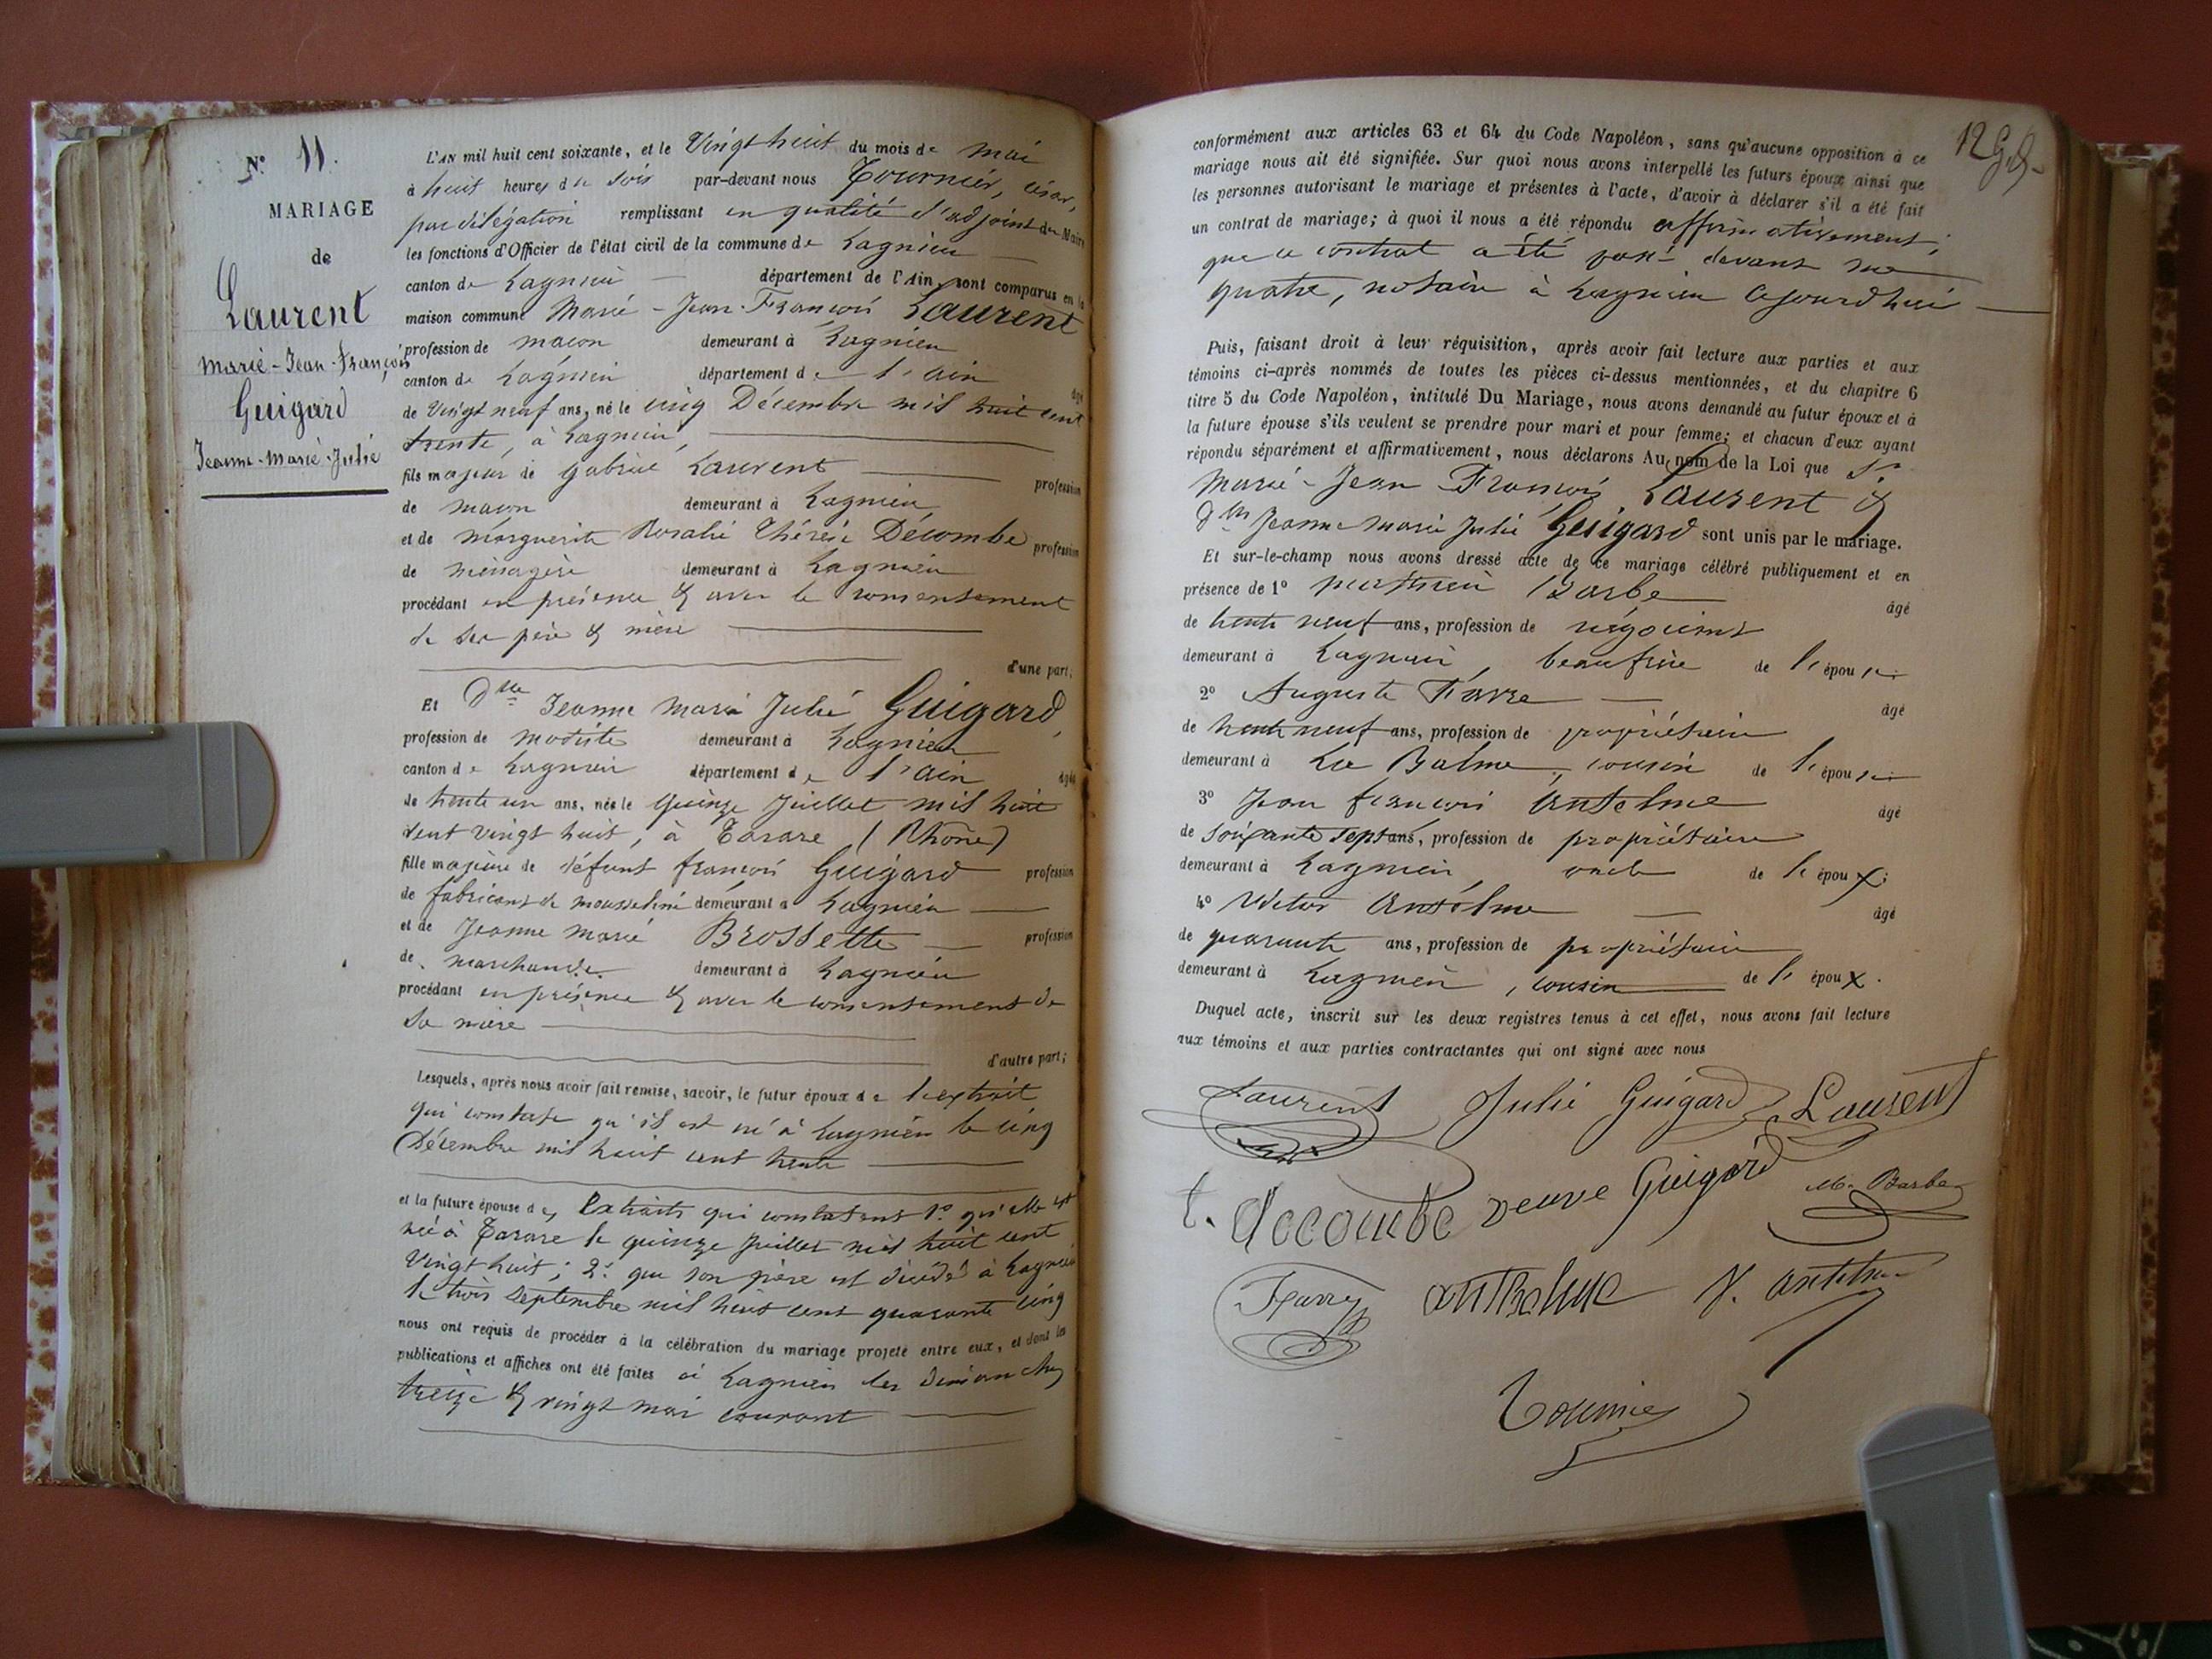 N.° 11.
MARIAGE
de
Laurent
Marie-Jean-François
Guigard
Jeanne-Marie-Julie
L'AN mil huit cent soixante, et le Vingt huit du mois de mai
à huit heures du soir par-devant nous Tournier, César,
par délégation remplissant en qualité d'adjoint du Maire
les fonctions d'Officier de l'état civil de la commune de Lagnieu
canton de Lagnieu département de l'Ain, sont comparus en la
maison commune Marie-Jean-François Laurent
profession de maçon demeurant à Lagnieu
canton de Lagnieu département de l'ain âgé
de Vingt neuf ans, né le cinq Décembre mil huit cent
trente, à Lagnieu,
fils majeur de Gabriel Laurent profession
de maçon demeurant à Lagnieu,
et de Marguerite Rosalie Thérèse Décombe profession
de ménagère demeurant à Lagnieu
procédant en présence & avec le consentement
de ses père & mère
d'une part;
Et Dlle Jeanne Marie Julie Guigard,
profession de modiste demeurant à Lagnieu
canton de Lagnieu département de l'ain âgée
de trente un ans, née le quinze Juillet mil huit
cent vingt huit, à Tarare (Rhône)
fille majeure de défunt françois Guigard profession
de fabricant de mousseline demeurant à Lagnieu
et de Jeanne Marie Brossette profession
de marchande demeurant à Lagnieu
procédant en présence & avec le consentement de
sa mère
d'autre part;
Lesquels, après nous avoir fait remise, savoir, le futur époux de l'extrait
qui constate qu'il est né à Lagnieu le cinq
Décembre mil huit cent trente
et la future épouse des Extraits qui constatent 1.° qu'elle est
née à Tarare le quinze Juillet mil huit cent
vingt huit; 2.° que son père est décédé à Lagnieu
le trois septembre mil huit cent quarante cinq
nous ont requis de procéder à la célébration du mariage projeté entre eux, et dont les
publications et affiches ont été faites à Lagnieu les dimanches
treize & vingt mai courant
12
conformément aux articles 63 et 64 du Code Napoléon, sans qu'aucune opposition à ce
mariage nous ait été signifiée. Sur quoi nous avons interpellé les futurs époux ainsi que
les personnes autorisant le mariage et présentes à l'acte, d'avoir à déclarer s'il a été fait
un contrat de mariage; à quoi il nous a été répondu affirmativement;
que ce contrat a été passé devant me
quatre, notaire à Lagnieu Cejourdhui
Puis, faisant droit à leur réquisition, après avoir fait lecture aux parties et aux
témoins ci-après nommés de toutes les pièces ci-dessus mentionnées, et du chapitre 6
titre 5 du Code Napoléon, intitulé Du Mariage, nous avons demandé au futur époux et à
la future épouse s'ils veulent se prendre pour mari et pour femme; et chacun d'eux ayant
répondu séparément et affirmativement, nous déclarons Au nom de la Loi que Sr
Marie-Jean François Laurent &
dlle Jeanne Marie Julie Guigard sont unis par le mariage.
Et sur-le-champ nous avons dressé acte de ce mariage célébré publiquement et en
présence de 1° mathieu Barbe âgé
de trente neuf ans, profession de négociant
demeurant à Lagnieu, beaufrère de l'épouse
2° Auguste Favre âgé
de trente neuf ans, profession de propriétaire
demeurant à La Balme, cousin de l'épouse
3° Jean françois Anselme âgé
de soixante sept ans, profession de propriétaire
demeurant à Lagnieu, oncle de l'époux;
4° Victor Anselme âgé
de quarante ans, profession de propriétaire
demeurant à Lagnieu, cousin de l'époux.
Duquel acte, inscrit sur les deux registres tenus à cet effet, nous avons fait lecture
aux témoins et aux parties contractantes qui ont signé avec nous
Laurent Julie Guigard Laurent
t. decombe veuve Guigard M. Barbe
Favre
Tournier